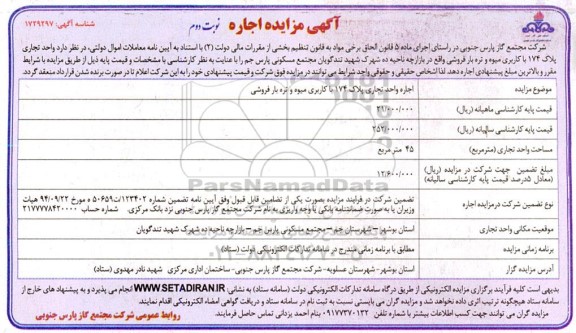 آگهی مزایده اجاره نوبت دوم
شناسه آگهی: ۱۷۲۹۲۹۷
شرکت مجتمع گاز پارس جنوبی در راستای اجرای ماده ۵ قانون الحاق برخی مواد به قانون تنظیم بخشی از مقررات مالی دولت (۲) با استناد به آیین نامه معاملات اموال دولتی، در نظر دارد واحد تجاری
پلاک ۱۷۴ با کاربری میوه و تره بار فروشی واقع در بازارچه ناحیه ده شهرک شهید تندگویان مجتمع مسکونی پارس جم را با عنایت به نظر کارشناسی با مشخصات و قیمت پایه ذیل از طریق مزایده با شرایط
مقرر و بالاترین مبلغ پیشنهادی اجاره دهد. لذا اشخاص حقیقی و حقوقی واجد شرایط می توانند در مزایده فوق شرکت و قیمت پیشنهادی خود را به این شرکت اعلام تا در صورت برنده شدن قرارداد منعقد گردد.
موضوع مزایده
اجاره واحد تجاری پلاک ۱۷۴ با کاربری میوه و تره بار فروشی
قیمت پایه کارشناسی ماهیانه (ریال)
قیمت پایه کارشناسی سالیانه (ریال)
۲۵۲/۰۰۰/۰۰۰
مساحت واحد تجاری (مترمربع)
۴۵ متر مربع
مبلغ تضمین جهت شرکت در مزایده (ریال)
(معادل ۵درصد قیمت پایه کارشناسی سالیانه)
۱۲/۶۰۰/۰۰۰
نوع تضمین شرکت درمزایده اجاره
تضمین شرکت در فرایند مزایده بصورت یکی از تضامین قابل قبول وفق آیین نامه تضمین شماره ۱۲۳۴۰۲/ت۵۰۶۵۹ ه مورخ ۹۴/۰۹/۲۲ هیات
وزیران یا به صورت ضمانتنامه بانکی یا وجه واریزی به نام شرکت مجتمع گاز پارس جنوبی نزد بانک مرکزی. شماره حساب
موقعیت مکانی واحد تجاری
استان بوشهر – شهرستان جم – مجتمع مسکونی پارس جم – بازارچه ناحیه ده شهرک شهید تندگویان
برنامه زمانی مزایده
مطابق با برنامه زمانی مندرج در سامانه تدارکات الکترونیکی دولت (ستاد)
آدرس مزایده گزار
استان بوشهر- شهرستان عسلویه- شرکت مجتمع گاز پارس جنوبی- ساختمان اداری مرکزی شهید نادر مهدوی (ستاد)
بدیهی است کلیه فرآیند برگزاری مزایده الکترونیکی از طریق درگاه سامانه تدارکات الکترونیکی دولت (سامانه ستاد) به نشانی: WWW.SETADIRAN.IR انجام می پذیرد و به پیشنهاد های خارج از
سامانه ستاد هیچگونه ترتیب اثری داده نخواهد شد و مزایده گران می بایستی نسبت به ثبت نام در سامانه ستاد و دریافت گواهی امضاء الکترونیکی اقدام نمایند.
مزایده گران می توانند جهت کسب اطلاعات بیشتر با شماره تلفن همراه ۰۹۱۷۷۳۷۰۱۳۲ بنام احمد یزدانی تماس حاصل فرمایند.
روابط عمومی شرکت مجتمع گاز پارس جنوبی